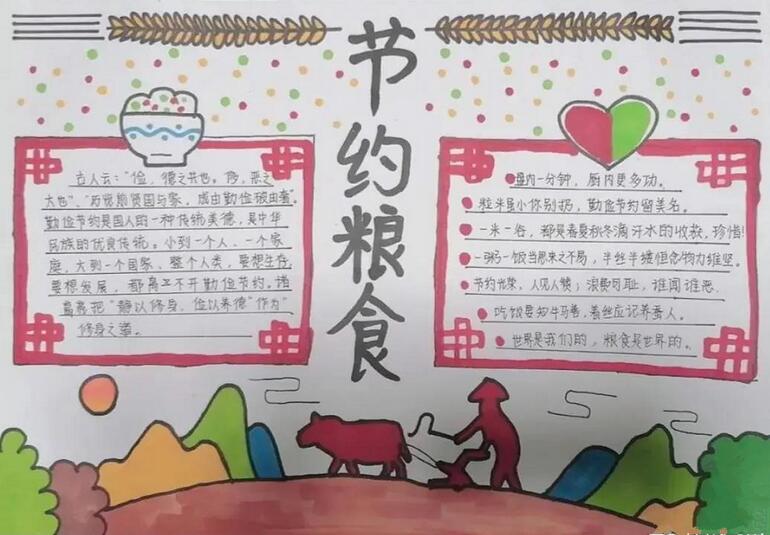 节约粮食
古人云:"俭,德之共也。侈,恶之
大也"、"历览前贤国与家,成由勤俭破由奢"。
勤俭节约是国人的一种传统美德,是中华
民族的优良传统。小到一个人、一个家
庭,大到一个国家、整个人类,要想生存,
要想发展,都离不开勤俭节约。诸
葛亮把"静以修身,俭以养德"作为"
修身之道。
内一分钟,厨内更多功。
粒米虽小你别扔,勤俭节约留美名。
一米一谷,都是春夏秋冬滴汗水的收获,珍惜!
一粥一饭当思来之不易,半丝半缕恒念物力维坚。
节约光荣,人见人赞;浪费可耻,谁闻谁恶.
吃饭要知牛马善,着丝应记养蚕人。
世界是我们的,粮食是世界的。